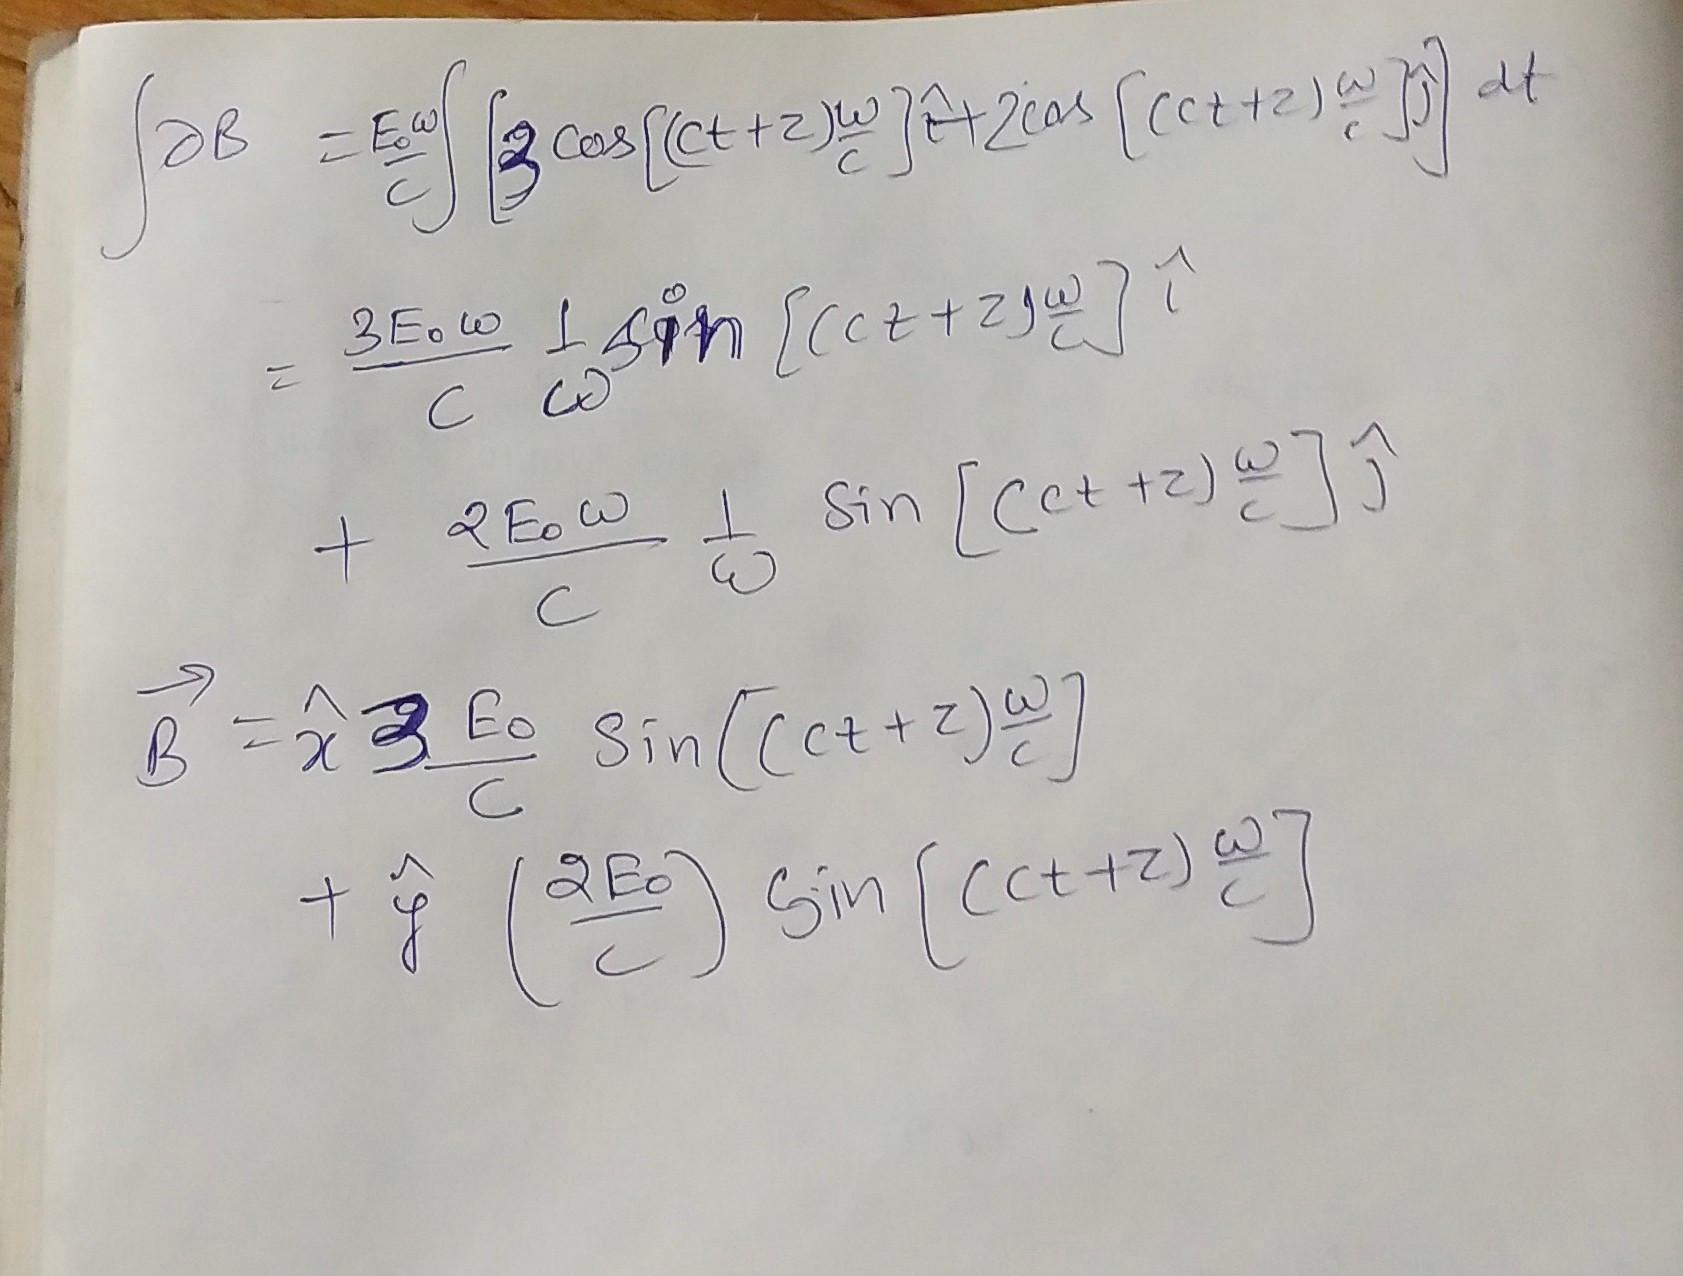 ∫∂B = E₀ω/c ∫ [3 cos[(ct+z)ω/c] î + 2cos [(ct+z) ω/c ]ĵ] dt
= 3E₀ω/c 1/ω sin [(ct+z)ω/c] î
+ 2E₀ω/c 1/ω Sin [(ct+z) ω/c] ĵ
B⃗ = x̂ 3 E₀/c Sin[(ct+z)ω/c]
+ ŷ (2E₀/c) Sin [(ct+z) ω/c]